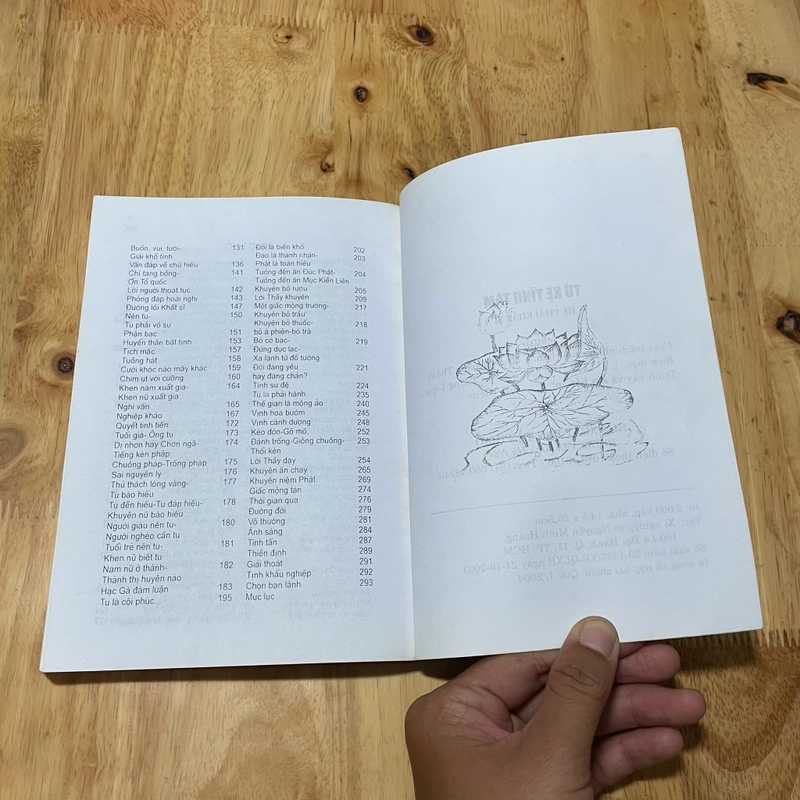 Buồn, vui, tươi- 131
Giải khổ tình
Vấn đáp về chữ hiếu 136
Chí tang bồng- 141
Ơn Tổ quốc
Lời người thoát tục 142
Phỏng đáp hoài nghi 143
Đường lối Khất sĩ 147
Nên tu- 150
Tu phải vô sư
Phận bạc 151
Huyền thân bất tịnh 153
Tịch mặc 157
Tuồng hát 158
Cười khóc nào mấy khác 159
Chim út với cưỡng 160
Khen nam xuất gia- 164
Khen nữ xuất gia
Nghi vấn 165
Nghiệp khảo 167
Quyết tinh tiến 172
Tuổi già- Ông tu 173
Dị nhơn hay Chơn ngã- 174
Tiếng kén pháp
Chuông pháp-Trống pháp 175
Sai nguyên lý 176
Thử thách lòng vàng- 177
Tu báo hiếu
Tu đền hiếu-Tu đáp hiếu- 178
Khuyên nữ báo hiếu
Người giàu nên tu- 180
Người nghèo cần tu
Tuổi trẻ nên tu- 181
Khen nữ biết tu
Nam nữ ở thành- 182
Thành thị huyên náo
Hạc Gà đàm luận 183
Tu là cội phúc... 195
Đời là biển khổ 202
Đạo là thanh nhàn- 203
Phật là toàn hiếu
Tưởng đến ân Đức Phật- 204
Tưởng đến ân Mục Kiền Liên
Khuyên bỏ rượu 205
Lời Thầy khuyên 209
Một giấc mộng trường- 217
Khuyên bỏ trầu
Khuyên bỏ thuốc- 218
bỏ á phiện-bỏ trà
Bỏ cờ bạc- 219
Đừng đục lạc-
Xa lánh tứ đổ tường
Đời đáng yêu 221
hay đáng chán?
Tình sư đệ 224
Tu là phải hành 235
Thế gian là mộng ảo 240
Vịnh hoa bướm 245
Vịnh cảnh dương 248
Kéo đờn-Gõ mõ, 252
Đánh trống-Gióng chuông- 253
Thổi kèn
Lời Thầy dạy 254
Khuyên ăn chay 265
Khuyên niệm Phật 269
Giấc mộng tàn 274
Thời gian qua 276
Đường đời 279
Vô thường 281
Ánh sáng 284
Tinh tấn 287
Thiền định 289
Giải thoát 291
Tịnh khẩu nghiệp 292
Chọn bạn lành 293
Mục lục